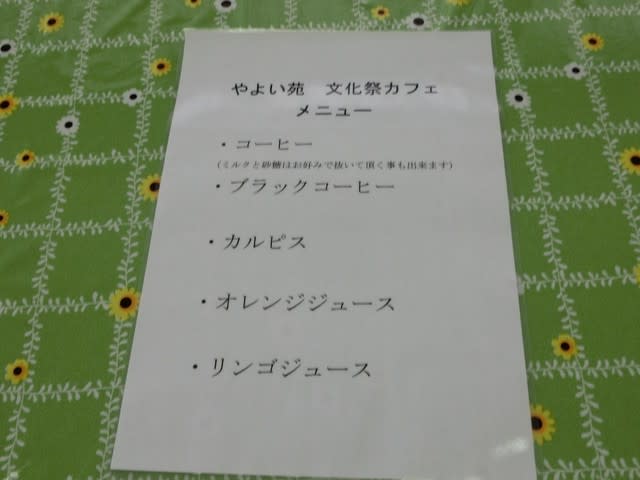 やよい苑　文化祭カフェ
メニュー
・コーヒー
（ミルクと砂糖はお好みで抜いて頂く事も出来ます）
・ブラックコーヒー
・カルピス
・オレンジジュース
・リンゴジュース